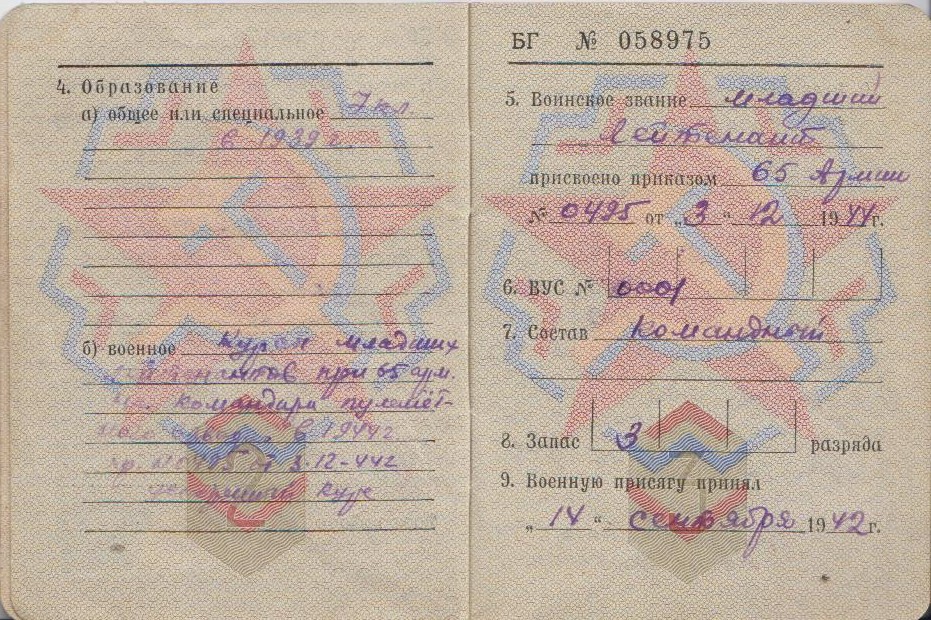 4. Образование
а) общее или специальное 7 кл.
в 1939 г.
б) военное Курсы младших
лейтенантов при 65 арм.
командира пулемёт-
взвода в 1944 г
3-12-44 г
курс
БГ № 058975
5. Воинское звание младший
лейтенант
присвоено приказом 65 Армии
№ 0495 от „3" 12 1944 г.
6. ВУС № 0001
7. Состав командный
8. Запас 3 разряда
9. Военную присягу принял
„14" сентября 1942 г.